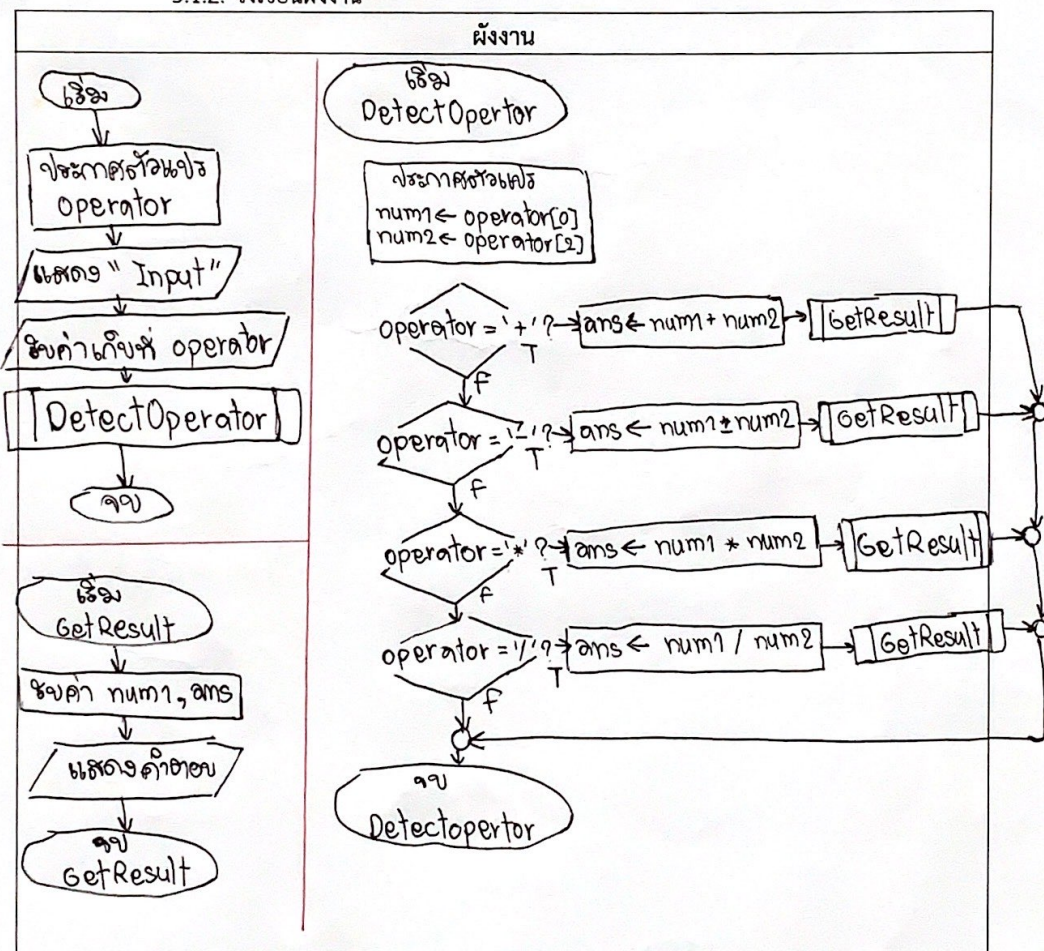 ผังงาน
เริ่ม
ประกาศตัวแปร
operator
แสดง " Input"
รับค่าเก็บที่ operator
DetectOperator
จบ
เริ่ม
GetResult
รับค่า num1, ans
แสดงคำตอบ
จบ
GetResult
เริ่ม
DetectOpertor
ประกาศตัวแปร
num1 ← operator[0]
num2 ← operator[2]
operator = '+' ? T ans ← num1 + num2 GetResult
f
operator = '-' ? T ans ← num1 ± num2 GetResult
f
operator = '*' ? T ans ← num1 * num2 GetResult
f
operator = '/' ? T ans ← num1 / num2 GetResult
f
จบ
Detectopertor